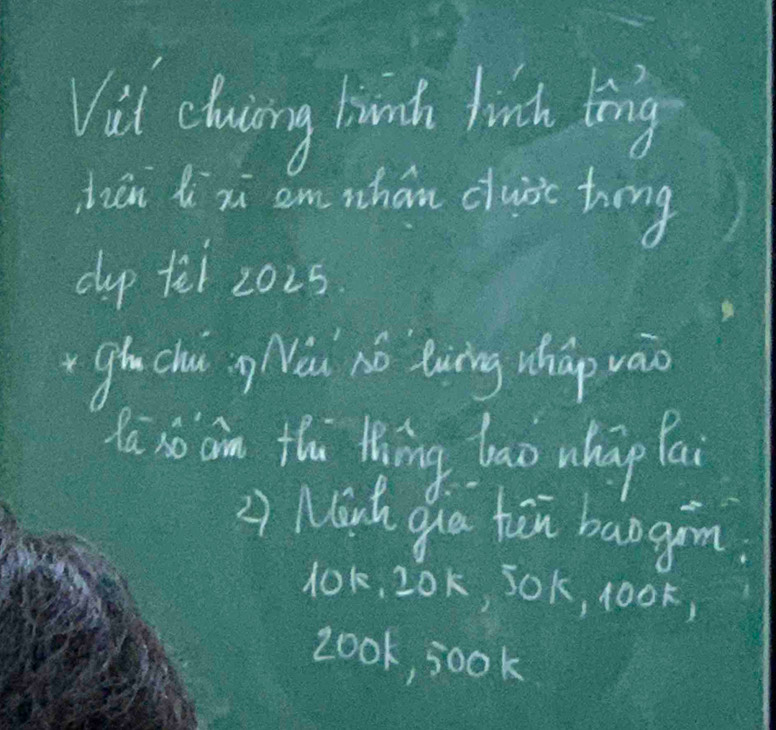 Viết chương trình tính tổng
tiền lì xì em nhận được trong
dịp tết 2025.
* ghi chú: 1) Nếu số lượng nhập vào
là số âm thì thông báo nhập lại
2) Mệnh giá tiền bao gồm:
10k, 20k, 50k, 100k,
200k, 500k